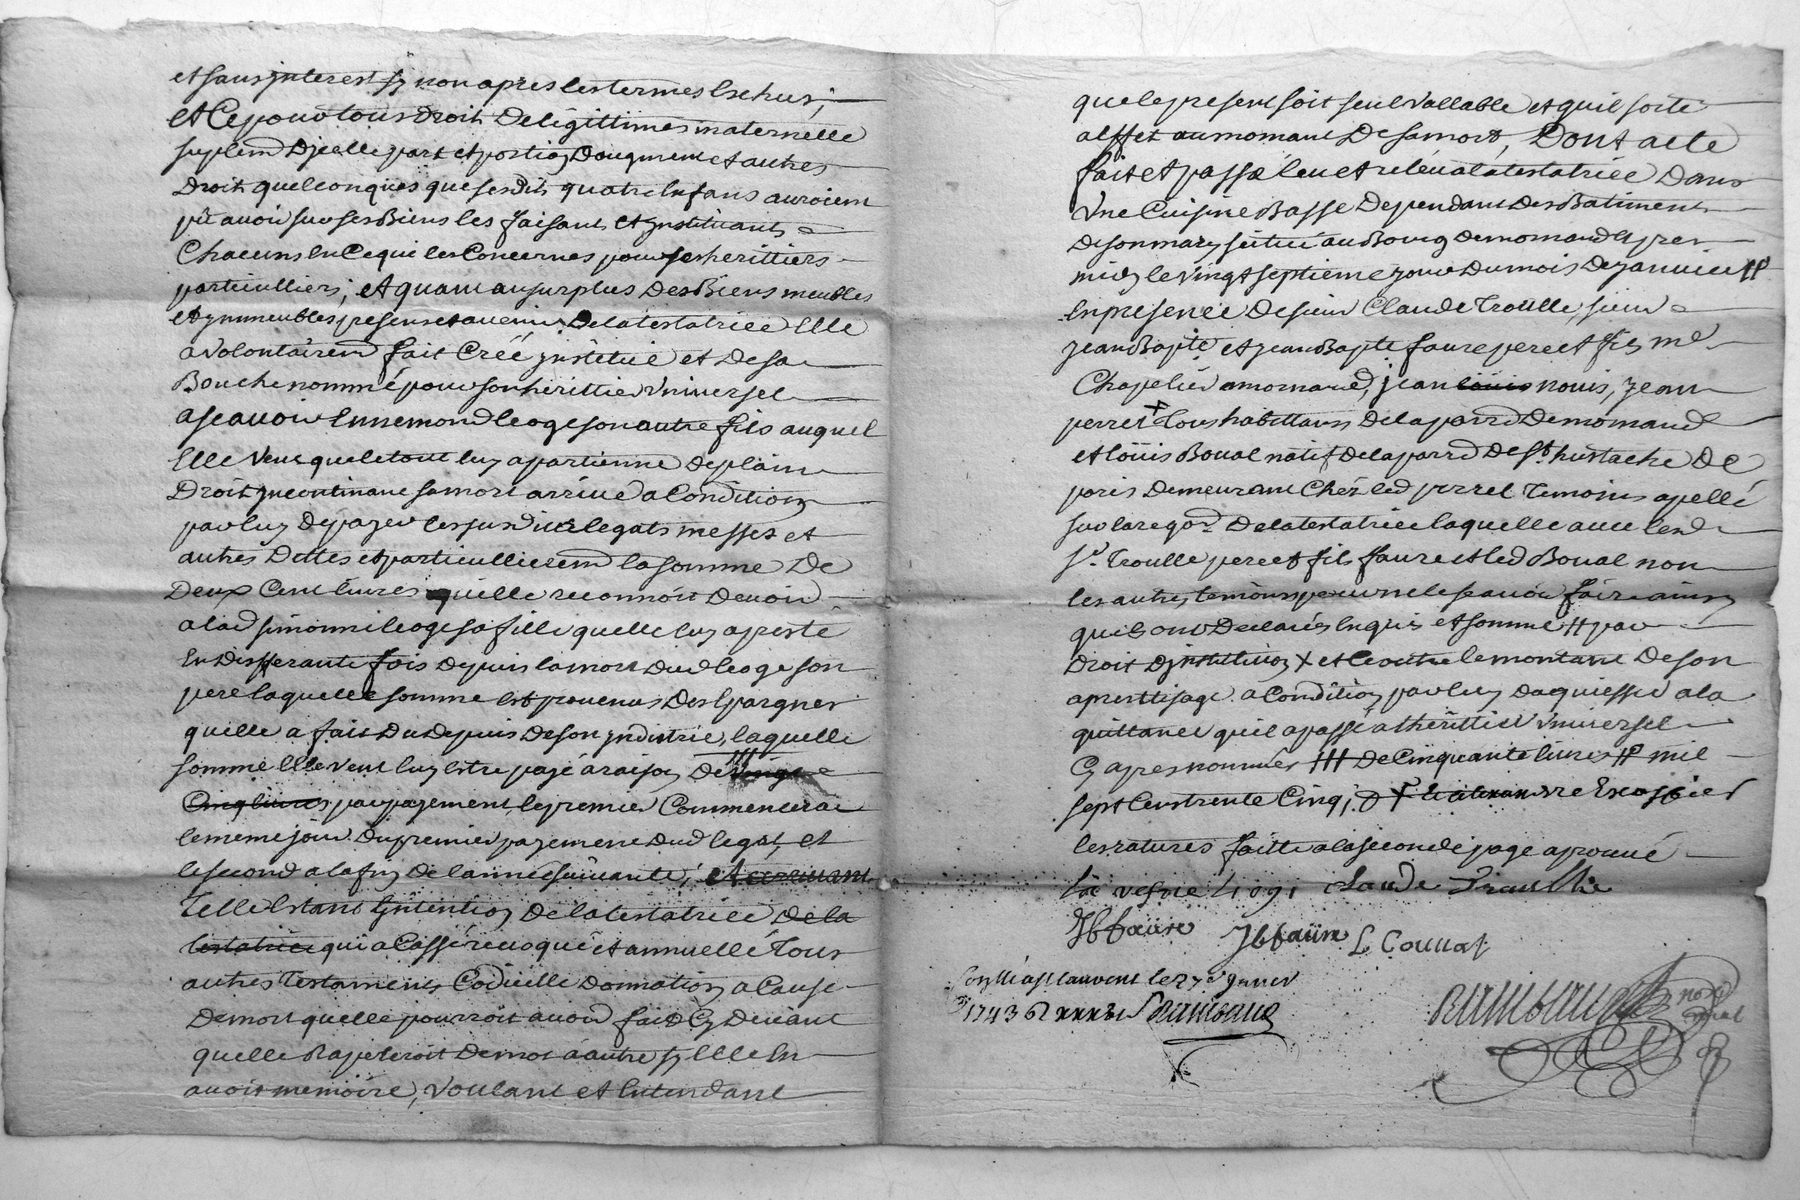 et sans jnterest sy non apres les termes Eschus;
et Ce pour tous Droit De legittimes maternelle
suplemt Djcelle part et portion Daugment et autres
Droit quelconques que sesdits quatre Enfans auroient
pû avoir sur ses Biens les faisant et jnstituants
Chacuns En Ce qui les Concernes pour ses herittiers
particulliers; et quant au surplus Des Biens meubles
et ymmeubles presens et avenir De la testatrice Elle
a volontairemt fait Créé jnstitué et De sa
Bouche nommé pour son herittier Vniversel
ascavoir Ennemond Leoge son autre fils auquel
Elle Veut que le tout luy apartienne De plain
Droit jncontinant sa mort arrivé a Condition
par luy De payer les susdits legats messes et
autres Dettes et particullieremt la somme De
Deux Cent livres quelle reconnoit Devoir
a lad simonne Leoge sa fille quelle luy a presté
En Differante fois Depuis la mort Dud Leoge son
pere laquelle somme Est provenus Des Epargnes
quelle a fait Du Depuis De son jndustrie, laquelle
somme Elle veut luy Estre payé a raison De vingt
Cinq livres par payement, le premier Commencera
le meme jour Du premier payement Dud legat, et
le second a la fin De lannée suivante; et arrivant
telle Estant l'jntention De la testatrice De la
testatrice qui a Cassé revoqué et annuellé tous
autres testament Codicille Donnation a Cause
De mort quelle pourroit avoir fait Cy Devant
quelle Rapeleroit De mot a autre sy Elle En
avoit memoire, Voulant et Entendant
que le present soit seul vallable et quil sorte
a Effet au momant De sa mort, Dont acte
fait et passé leu et releu a la testatrice Dans
Vne Cuisine Basse Dependant Des Batiment
De son mary scitué au Bourg De mornand Apres
midy le vingt septieme jour Du mois De janvier #
En presence De sieur Claude Troullie, sieur
jean Bapte et jean Bapte faure pere et fils me
Chapelier a mornand, jean louis nouis, jean
perret + tous habittans De la parre De mornand
et loüis Boual natif De la parre De St hustache De
paris Demeurant Chéz led perret temoins apellé
sur la reqon De la testatrice laquelle avec lesd
Sr. Troulle pere et fils faure et led Boual non
les autres temoins pour ne le scavoir faire ainsy
quils ont Declarés Enquis et somme # par
Droit Djnstitution X et Ce outre le montant De son
aprettissage a Condition par luy Daquiesser a la
quittance quil a passé a lherittier Vniversel
Cy apres nommée ### De Cinquante livres # mil
sept Cent trente Cinq;
les ratures faitte a la seconde page aprouvé
Claude Troullie
JB faure JB faure L Bouual
Conllé a st Laurent le 27e janer
1743